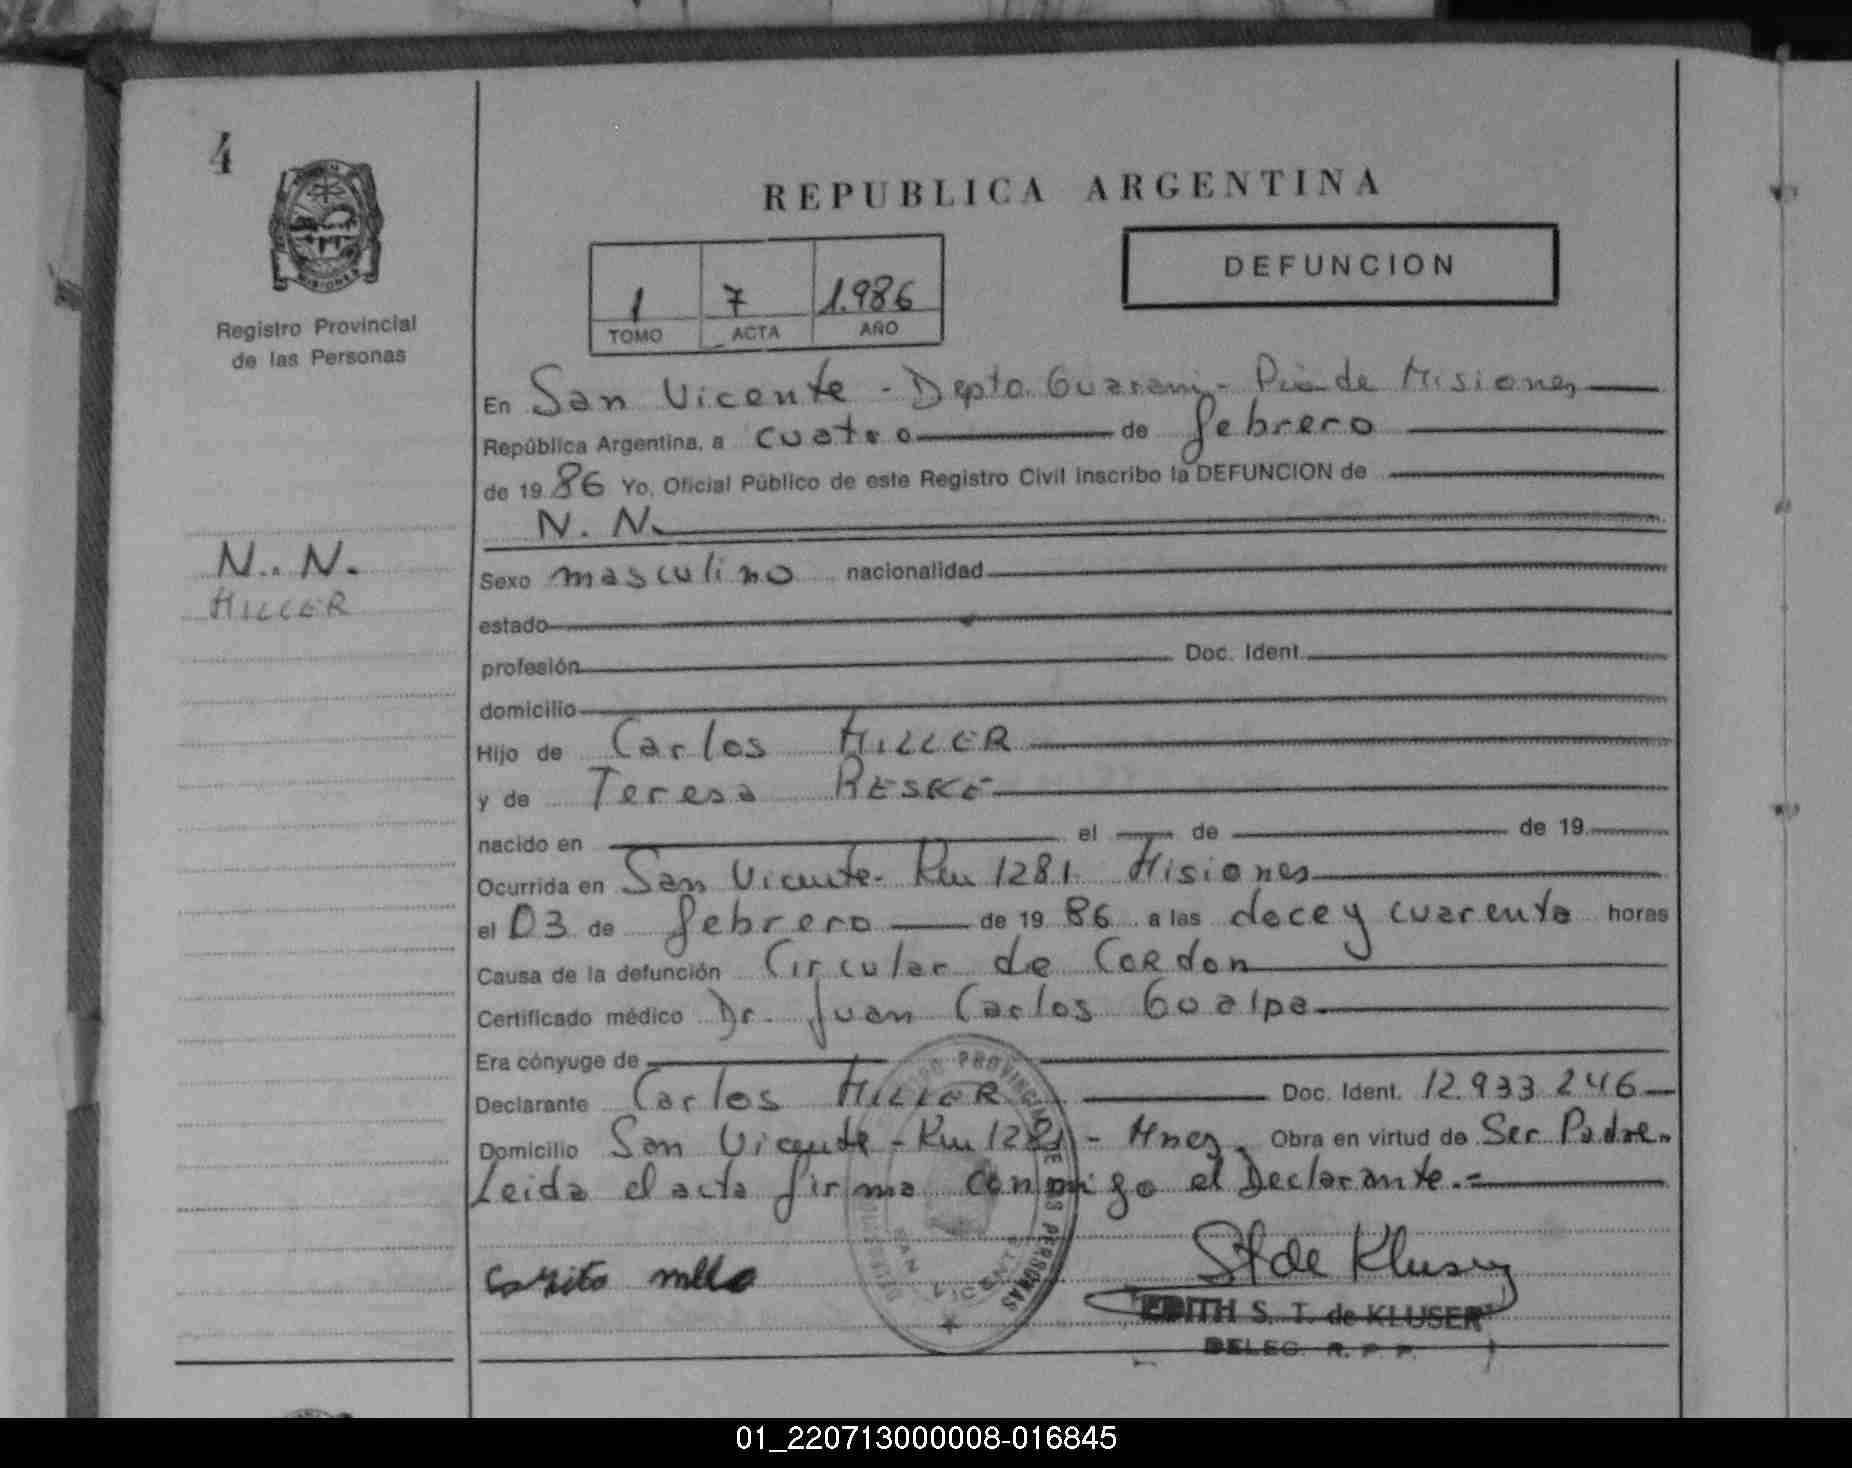 4
REPUBLICA ARGENTINA
DEFUNCION
1 7 1.986
TOMO ACTA AÑO
Registro Provincial
de las Personas
En San Vicente - Depto. Guarani - Pcia de Misiones
República Argentina, a cuatro de febrero
de 19 86 Yo, Oficial Público de este Registro Civil inscribo la DEFUNCION de
N. N.
N. N.
HILLER
Sexo masculino nacionalidad
estado
profesión Doc. Ident.
domicilio
Hijo de Carlos HILLER
y de Teresa RESKE
nacido en el de de 19
Ocurrida en San Vicente - Km 1281 Misiones
el 03 de febrero de 19 86 a las doce y cuarenta horas
Causa de la defunción Circular de Cordon
Certificado médico Dr. Juan Carlos Gualpa
Era cónyuge de
Declarante Carlos HILLER Doc. Ident. 12.933.246
Domicilio San Vicente - Km 1281 - Mnes. Obra en virtud de Ser Padre.
Leida el acta firma conmigo el Declarante.=
REGISTRO PROVINCIAL DE LAS PERSONAS
SAN VICENTE
St de Kluser
EDITH S. T. de KLUSER
DELEG. R. P. P.
01_220713000008-016845